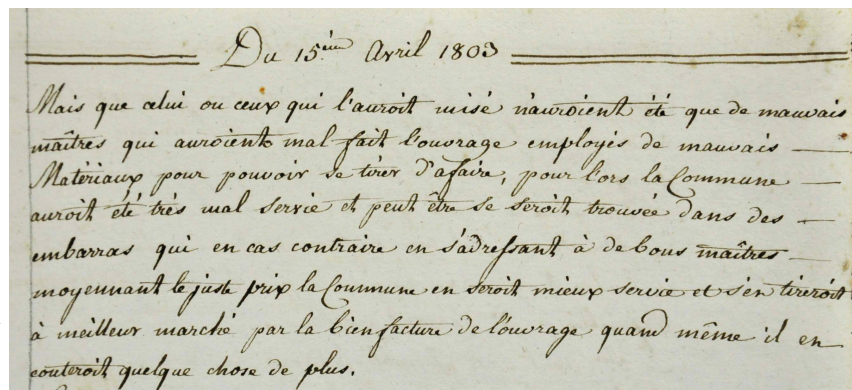 Du 15.ème Avril 1803
Mais que celui ou ceux qui l'auroit misé n'auroient été que de mauvais
maîtres qui auroient mal fait l'ouvrage employés de mauvais
Matériaux pour pouvoir se tirer d'afaire, pour lors la Commune
auroit été très mal servie et peut être se seroit trouvée dans des
embarras qui en cas contraire en s'adressant à de bons maîtres
moyennant le juste prix la Commune en seroit mieux servie et s'en tireroit
à meilleur marché par la bienfacture de l'ouvrage quand même il en
couteroit quelque chose de plus.